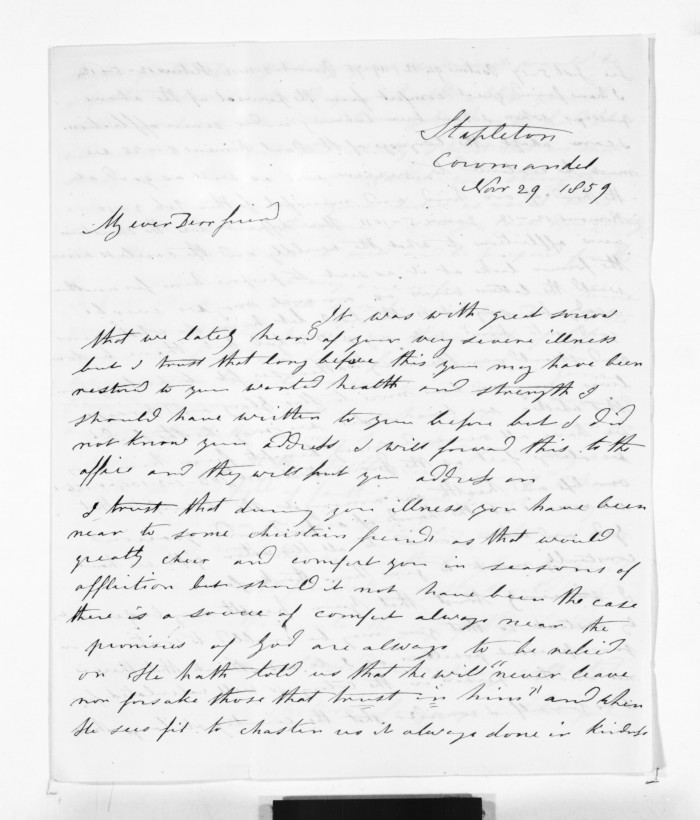 Stapleton
Coromandel
Nov 29. 1859
My ever Dear friend
It was with great sorrow
that we lately heard of your very severe illness
but I trust that long before this you may have been
restored to your wanted health and strength I
should have written to you before but I did
not know your address I will forward this to the
office and they will put your address on
I trust that during your illness you have been
near to some christain friends as that would
greatly cheer and comfort you in seasons of
affliction but should it not have been the case
there is a source of comfort always near the
promises of God are always to be relied
on He hath told us that he will "never leave
nor forsake those that trust in him" and when
He sees fit to chasten us it always done in kindness